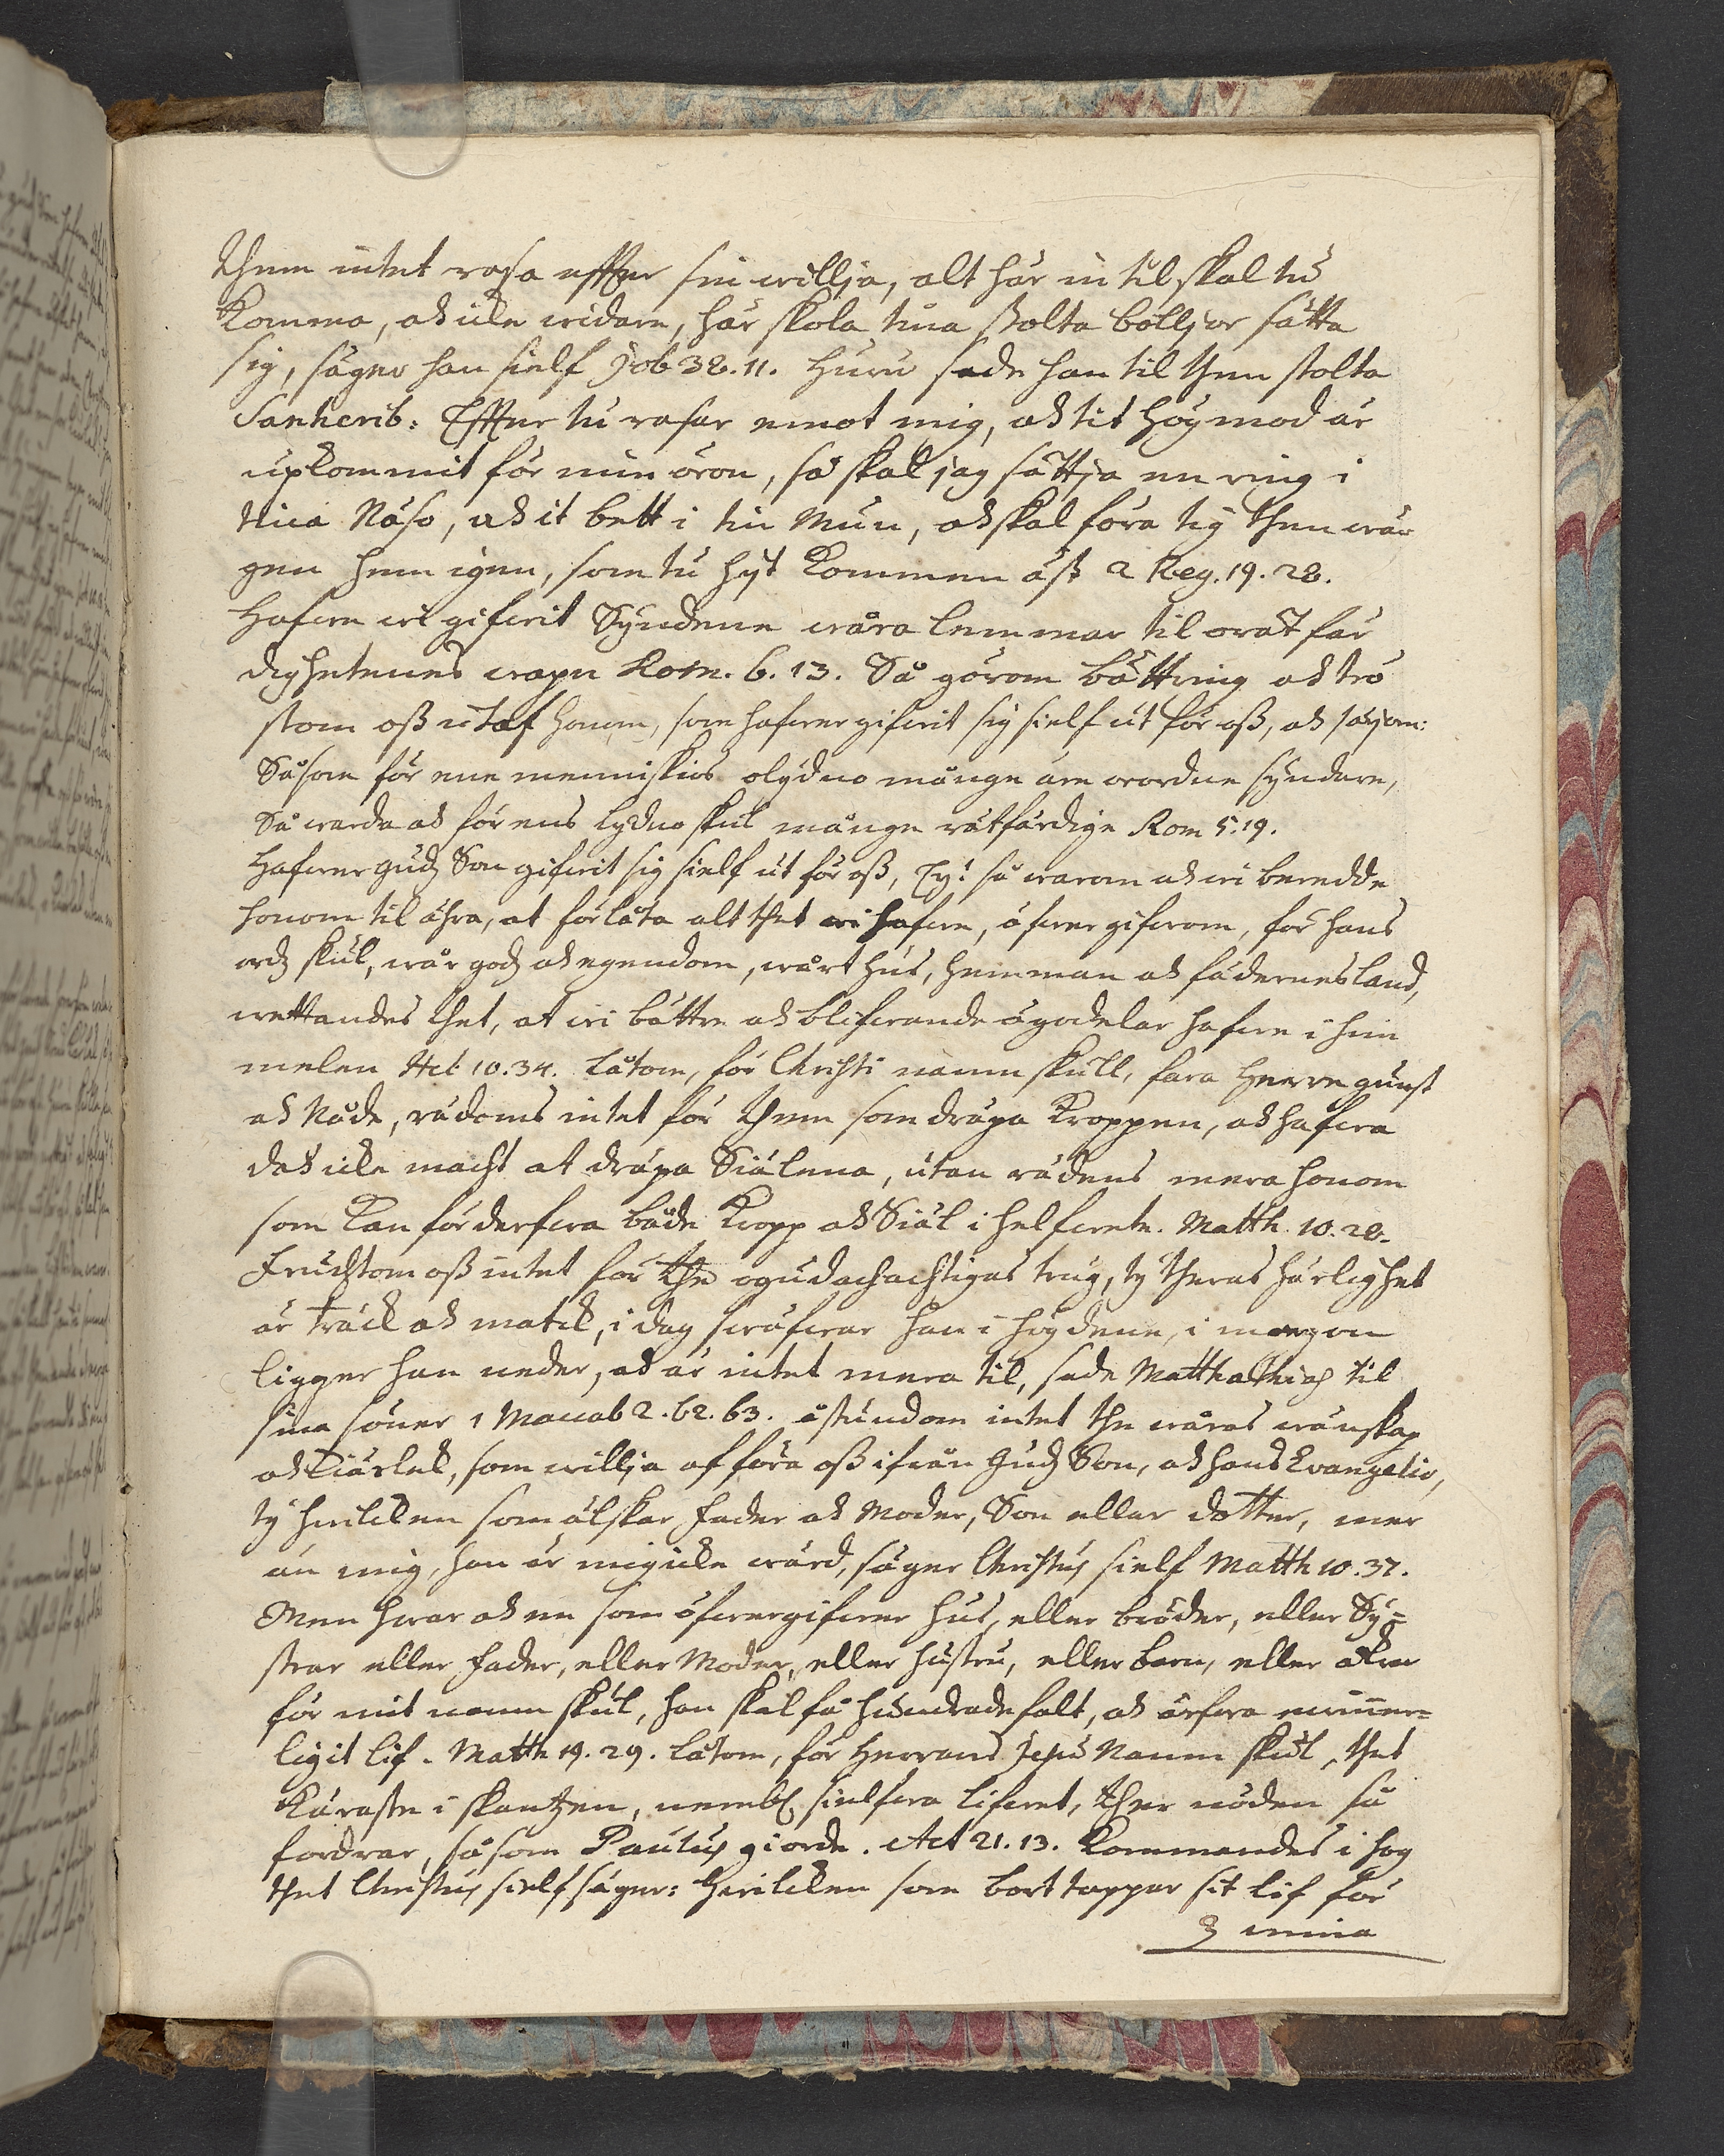 Them intet rasa effter sin willja, alt här in til skal tu
komma, och icke widare, här skola tina stolta bölljor sätta
sig, säger han sielf Job 38. 11. Huru sade han til then stolta
Sanherib: Effter tu rasar emot mig, och tit högmod är
upkommit för min öron, så skal jag sättja en ring i
tina Näso, och it bett i tin Mun, och skal föra tig then wä-
gen hem igen, som tu hyt kommen äst 2 Reg. 19. 28.
Hafwe wi gifwit Syndene wåra lemmar til orätfär
dighetenes wapn Rom. 6. 13. Så görom bättring och trö
stom oß utaf honom, som hafwer gifwit sig sielf ut för oß, och säijom:
Såsom för ene menniskios olydno månge äre wordne syndare,
Så warda och för ens lydno skul månge rätfärdige Rom 5. 19.
Hafwer Gudz Son gifwit sig sielf ut för oß, Ey! så warom och wi beredde
honom til ähra, at förlåta alt thet wi hafwe, öfwergifwom, för hans
ordz skul, wår godz och egendom, wårt hus, hemman och fädernesland,
wettandes thet, at wi bättre och blifwande ägodelar hafwe i him
melen Heb 10. 34. Låtom, för Christi namn skull, fara Herre gunst
och Nåde, rädoms intet för them som dräpa kroppen, och hafwa
doch icke macht at dräpa Siälena, utan rädens mera honom
som kan förderfwa både kropp och Siäl i helfwete. Matth. 10. 28.
Fruchtom oß intet för the ogudachachtigas trug, ty theras härlighet
är träck och matck, i dag swäfwar han i högdene, i morgon
ligger han neder, och är intet mera til, sade Matthathias til
sina söner 1 Maccab 2. 62. 63. åstundom intet the wåras wänskap
och kiärlek, som willja afföra oß ifrån Gudz Son, och hans Evangelio,
ty hwilcken som älskar fader och Moder, Son eller dotter, mer
än mig, han är mig icke wärd, säger Christus sielf Matth 10. 37.
Men hwar och en som öfwergifwer hus, eller bröder, eller Sy=
strar eller fader, eller Moder, eller hustru, eller barn, eller åkrar
för mit namn skul, han skal få hundrade falt, och ärfwa ewinner=
ligit lif. Matth 19. 29. Låtom, för Herrans Jesu Namn skul, thet
käraste i skantzen, nembl. sielfwa lifwet, ther nöden så
fordrar, såsom Paulus giorde. Act 21. 13. kommandes i hog
thet Christus sielf säger: Hwilcken som borttappar sit lif för
mina